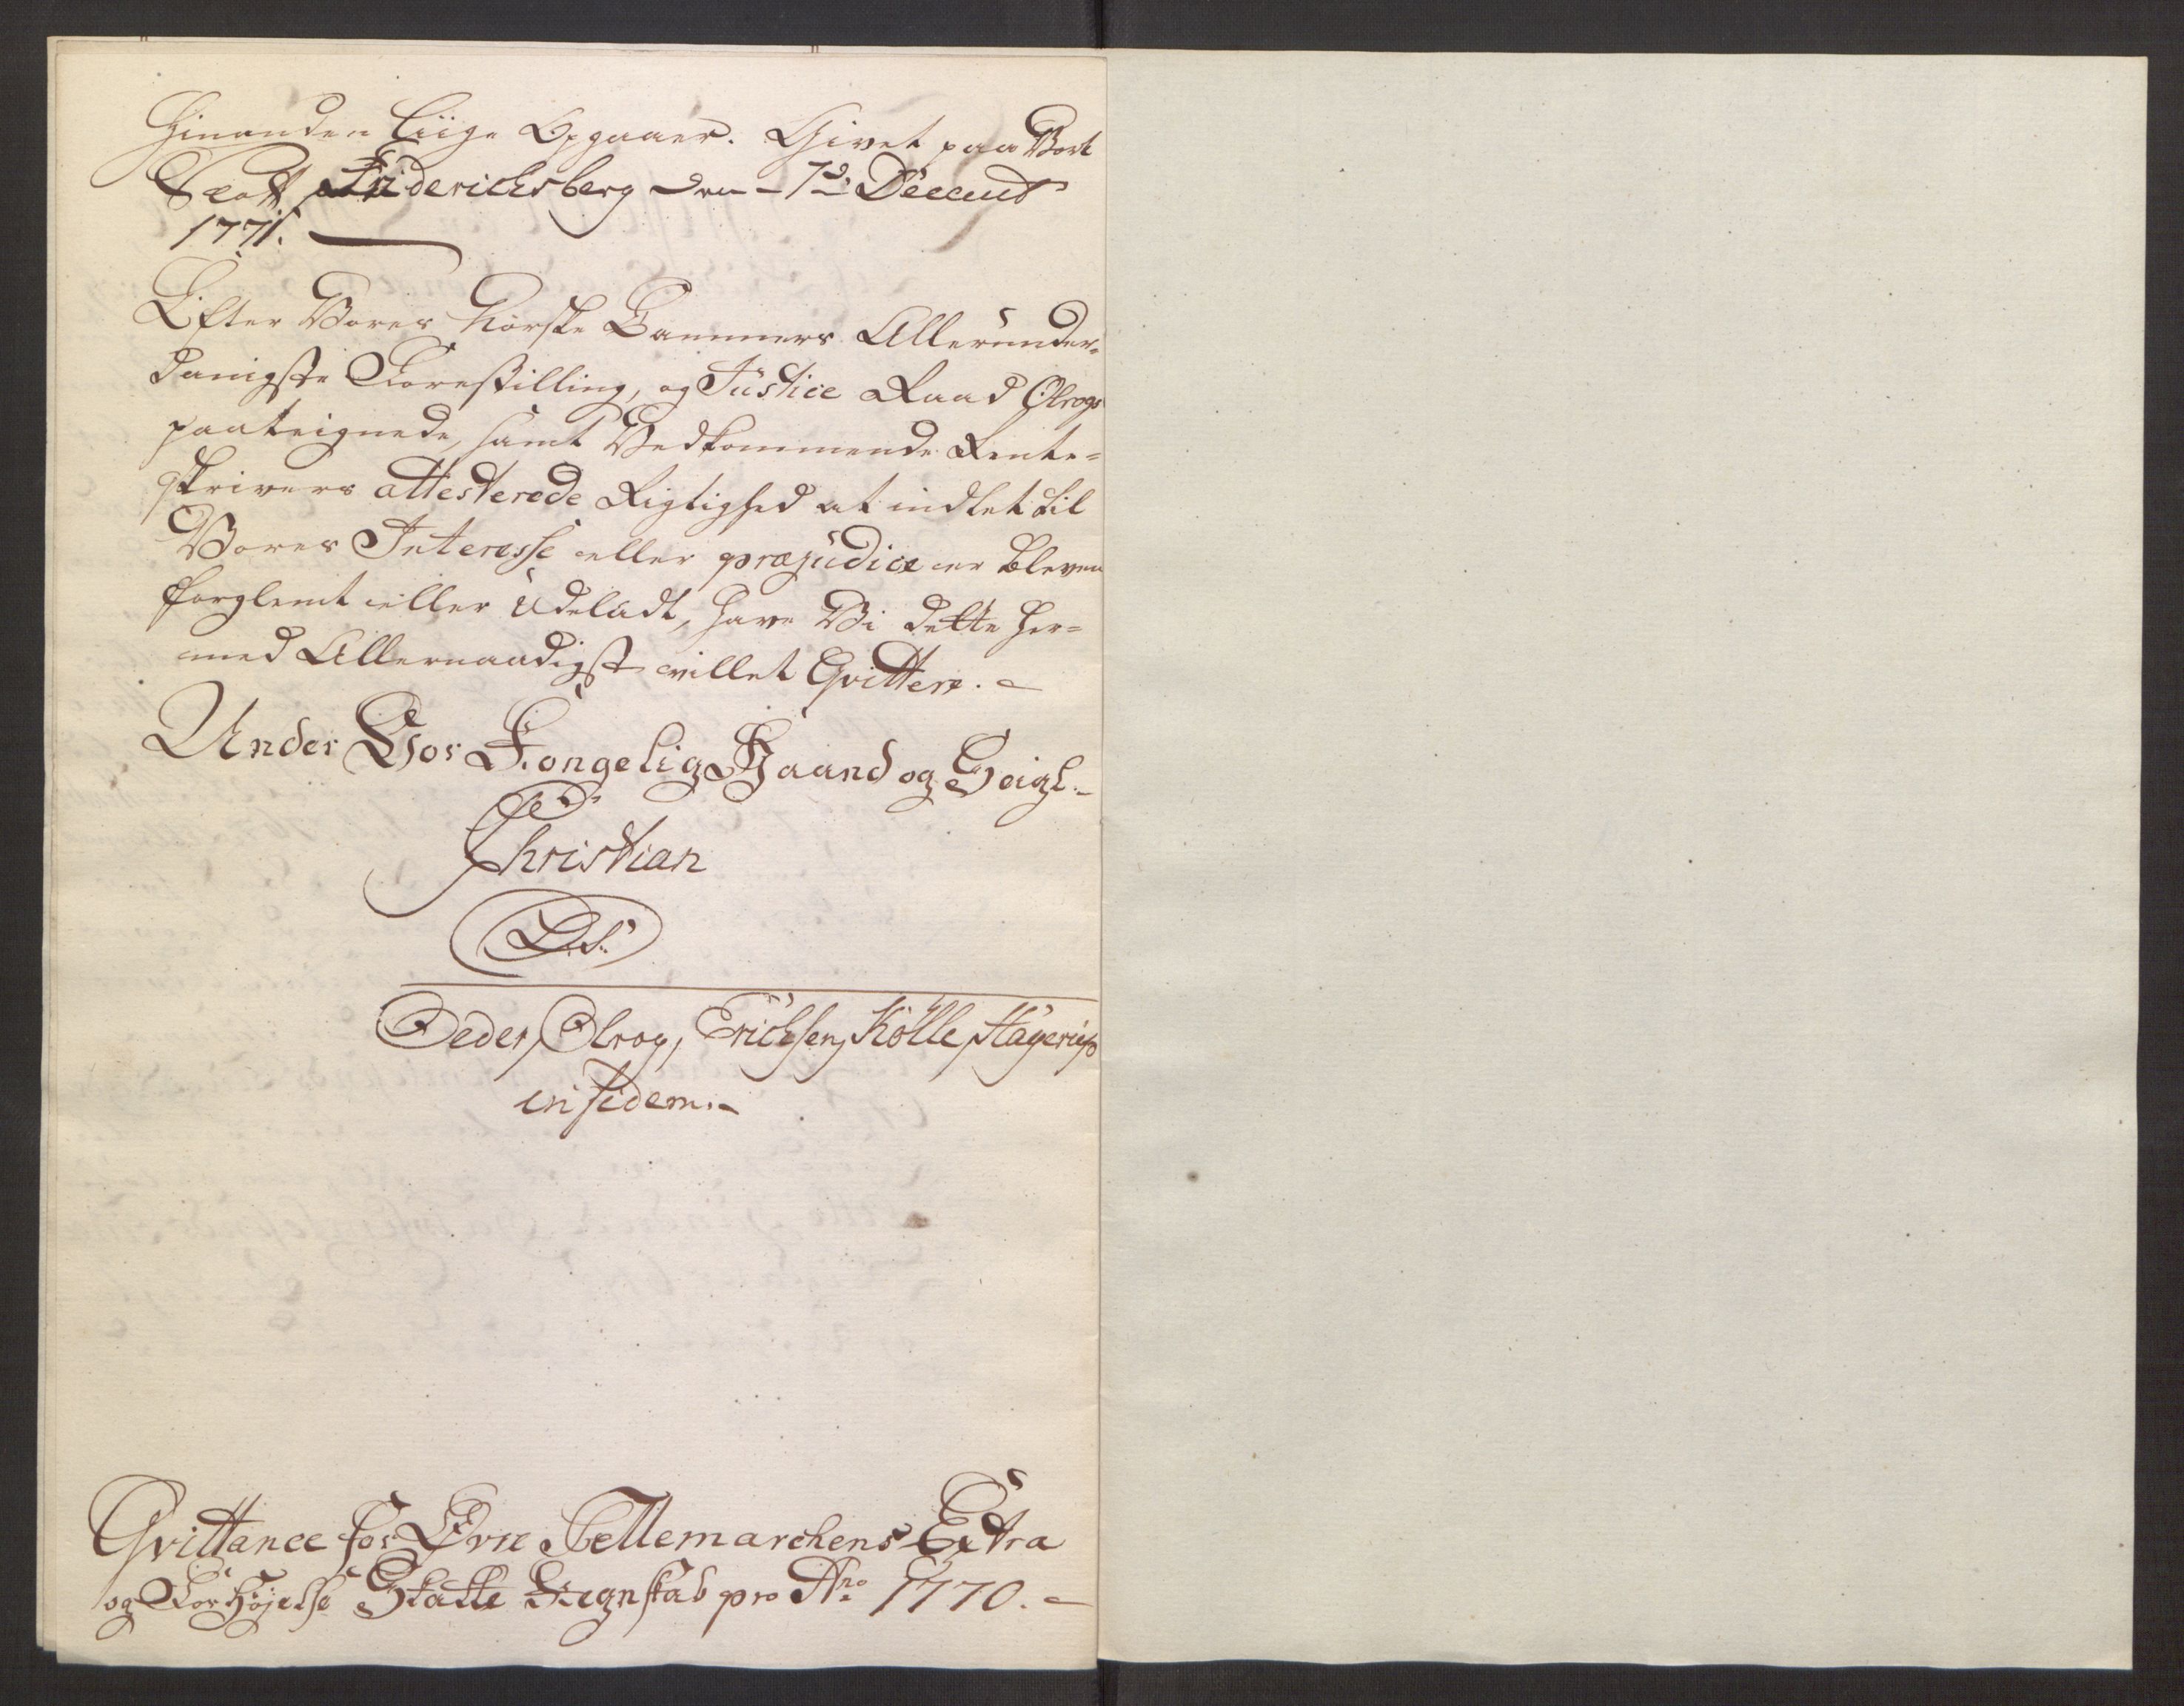 hinanden liige Opgaaer. Givet paa Vort
Slott Friderichsberg den 7de Decembr
1771.
Efter Vores Norske Cammers Allerunder-
danigste Forestilling, og Justice Raad Olrogs
paateignede, samt Vedkommende Rente-
skrivers attesterede Rigtighed at indtet til
Vores Interesse eller præjudice er bleven
forglemt eller Udeladt, have Vi dette her-
med Allernaadigst villet Qvittere.
Under Vor Kongelig Haand og Seigl.
Christian
L. S.
Oeder, Olrog, Erichsen, Kölle, Hagerup
in fidem.
Qvittance for Øvre Tellemarchens Extra
og Forhøjelse Skatte Regnskab pro Ao 1770.